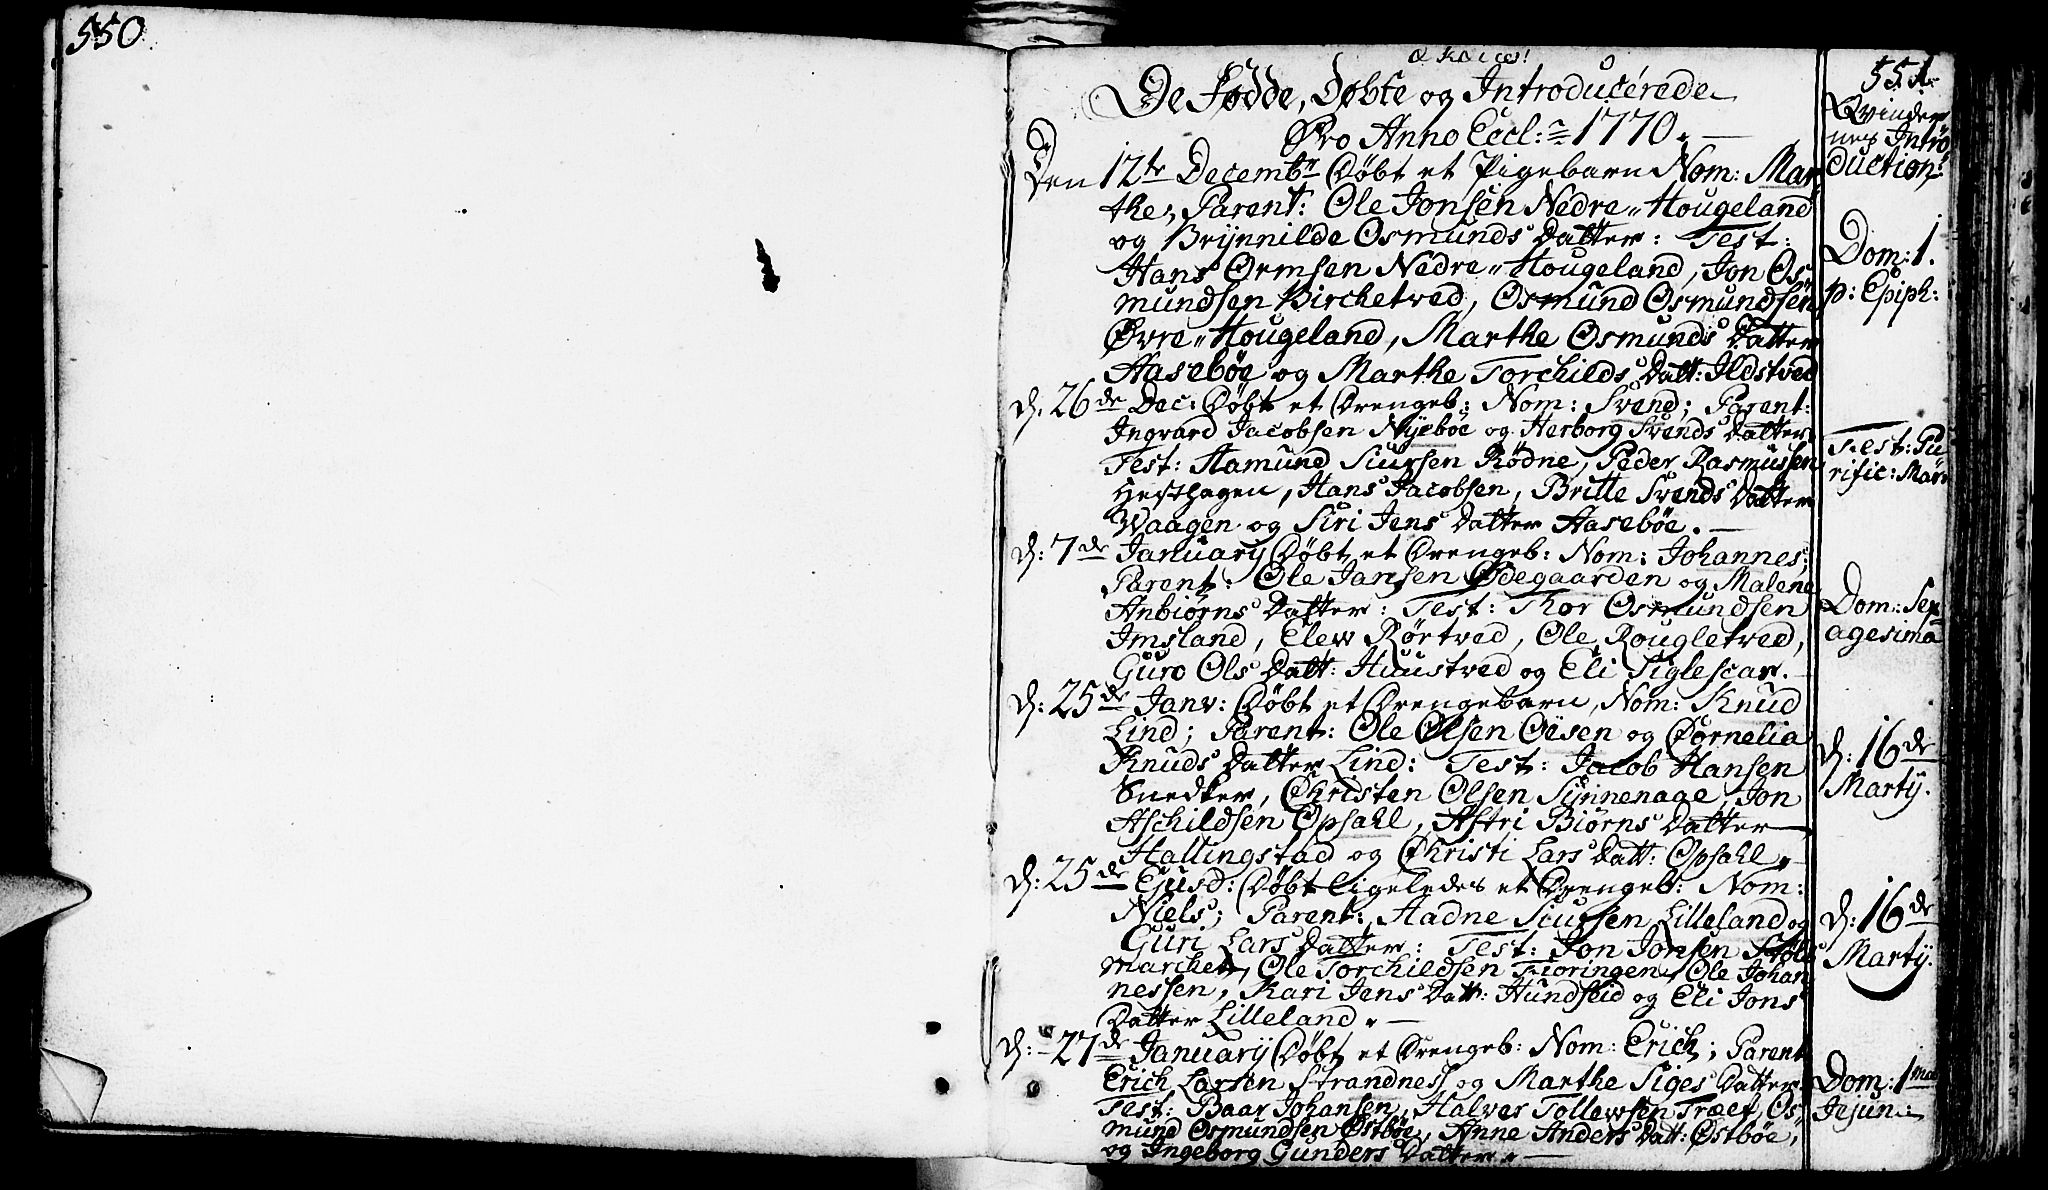 550
551
De Fødde, Døbte og Introducerede
Pro Anno Eccl: 1770.
Qvinder
nes Intro
duction:
Den 12te Decembr Døbt et Pigebarn Nom: Mar
the, Parent: Ole Jonsen Nedre-Hougeland
og Brynnilde Osmunds Datter: Test:
Hans Ormsen Nedre-Hougeland, Jon Os
mundsen Birchetved, Osmund Osmundsen
Øvre-Hougeland, Marthe Osmunds Datter
Aasebøe og Marthe Torchilds Datt: Ildstved
Dom: 1.
p: Epiph:
d. 26de Dec: Døbt et Drengeb: Nom: Svend; Parent:
Ingvard Jacobsen Nyebøe og Herborg Svends Datter
Test: Aamund Siursen Rødne, Peder Rasmussen
Hesthagen, Hans Jacobsen, Britte Svends Datter
Waagen og Siri Jens Datter Aasebøe.
Fest: Pu
rific: Mar:
d: 7de January Døbt et Drengeb: Nom: Johannes;
Parent: Ole Jansen Ødegaarden og Malene
Anbiørns Datter: Test: Thor Osmundsen
Imsland, Elew Rørtved, Ole Rougletved,
Guro Ols Datt: Huustved og Eli Siglescar.
Dom: Sep
agesima
d: 25de Janv: Døbt et Drengebarn, Nom: Knud
Lind; Parent: Ole Olsen Oësen og Cornelia
Knuds Datter Lind: Test: Jacob Hansen
Snedker, Christen Olsen Synnenage, Jon
Aschildsen Opsahl, Astri Biørns Datter
Hallingstad og Christi Lars Datt: Opsahl.
d: 16de
Marty.
d: 25de Ejusd: Døbt ligeledes et Drengeb: Nom:
Niels; Parent: Aadne Siursen Lilleland og
Guri Lars Datter: Test: Jon Jonsen Støls
marchen, Ole Torchildsen Fioringen, Ole Johan
nessen, Kari Jens Datt: Hundseid og Eli Jons
Datter Lilleland.
d: 16de
Marty.
d: 27de January Døbt et Drengeb: Nom: Erich; Parent
Erich Larsen Strandness og Marthe Siges Datter
Test: Baar Johansen, Halver Tollewsen Træet, Os
mund Osmundsen Østbøe, Anne Anders Datt: Østbøe,
og Ingeborg Gunders Datter.
Dom: 1ma
Jejun: